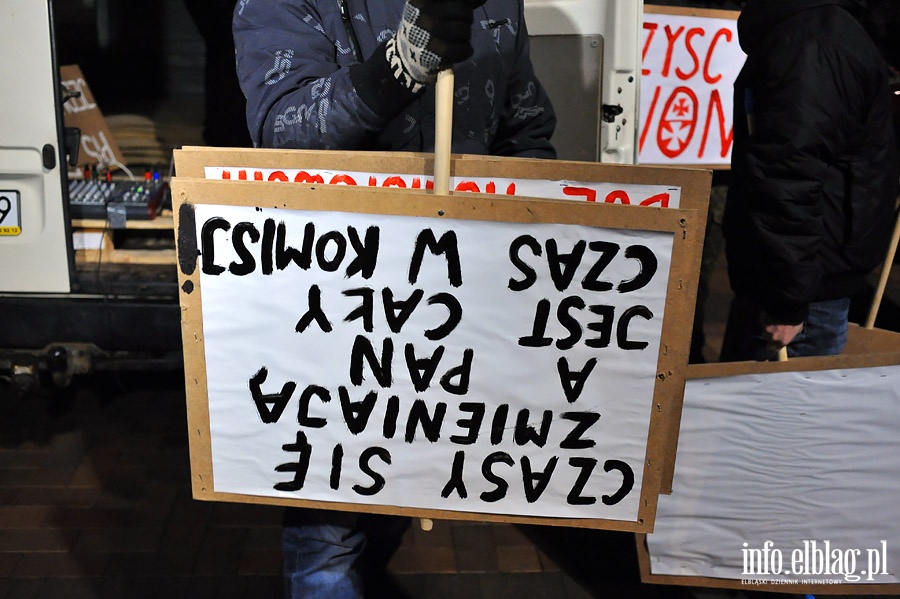 CZASY SIĘ
ZMIENIAJĄ
A PAN
JEST CAŁY
CZAS W KOMISJ
ZYSC
WON
9
info.elblag.pl
ELBLĄSKI DZIENNIK INTERNETOWY